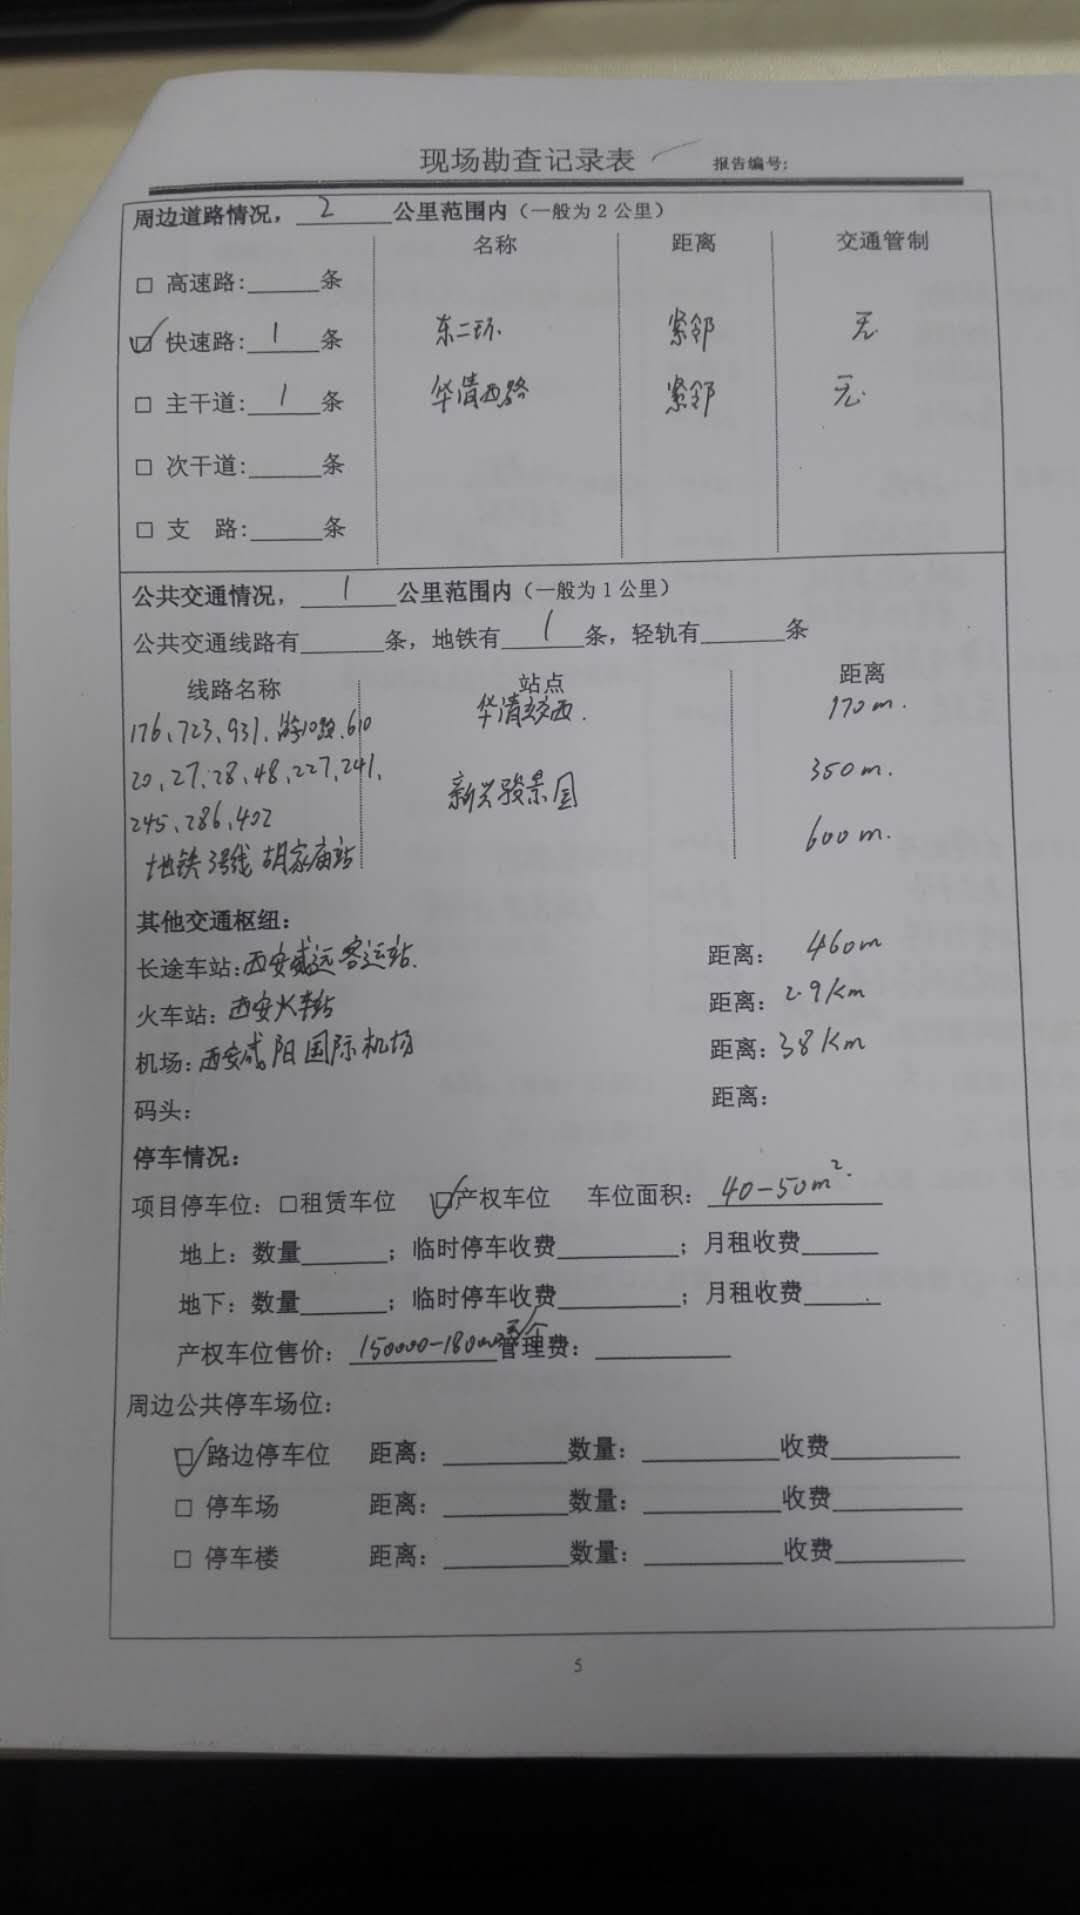 现场勘查记录表 报告编号:
周边道路情况，2公里范围内（一般为2公里）
名称 距离 交通管制
□ 高速路:______条
☑ 快速路: 1 条 东二环 紧邻 无
□ 主干道: 1 条 华清西路 紧邻 无
□ 次干道:______条
□ 支 路:______条
公共交通情况，1公里范围内（一般为1公里）
公共交通线路有______条，地铁有 1 条，轻轨有______条
线路名称 站点 距离
176、723、931、游10路、610 华清立交西 170m.
20、27、28、48、227、241、 新兴骏景园 350m.
245、286、402 600m.
地铁3号线 胡家庙站
其他交通枢纽:
长途车站:西安咸远客运站. 距离: 460m
火车站: 西安火车站 距离: 2.9Km
机场: 西安咸阳国际机场 距离: 38Km
码头: 距离:
停车情况:
项目停车位: □租赁车位 ☑产权车位 车位面积: 40-50m²
地上: 数量______; 临时停车收费________; 月租收费_____
地下: 数量______; 临时停车收费________; 月租收费_____
产权车位售价: 150000-180000元/个 管理费: ________
周边公共停车场位:
☑ 路边停车位 距离: ________数量: ________收费________
□ 停车场 距离: ________数量: ________收费________
□ 停车楼 距离: ________数量: ________收费________
5